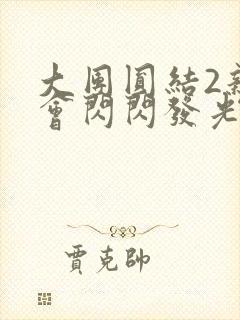 大團圓結2新
會閃閃發光
賈克帥